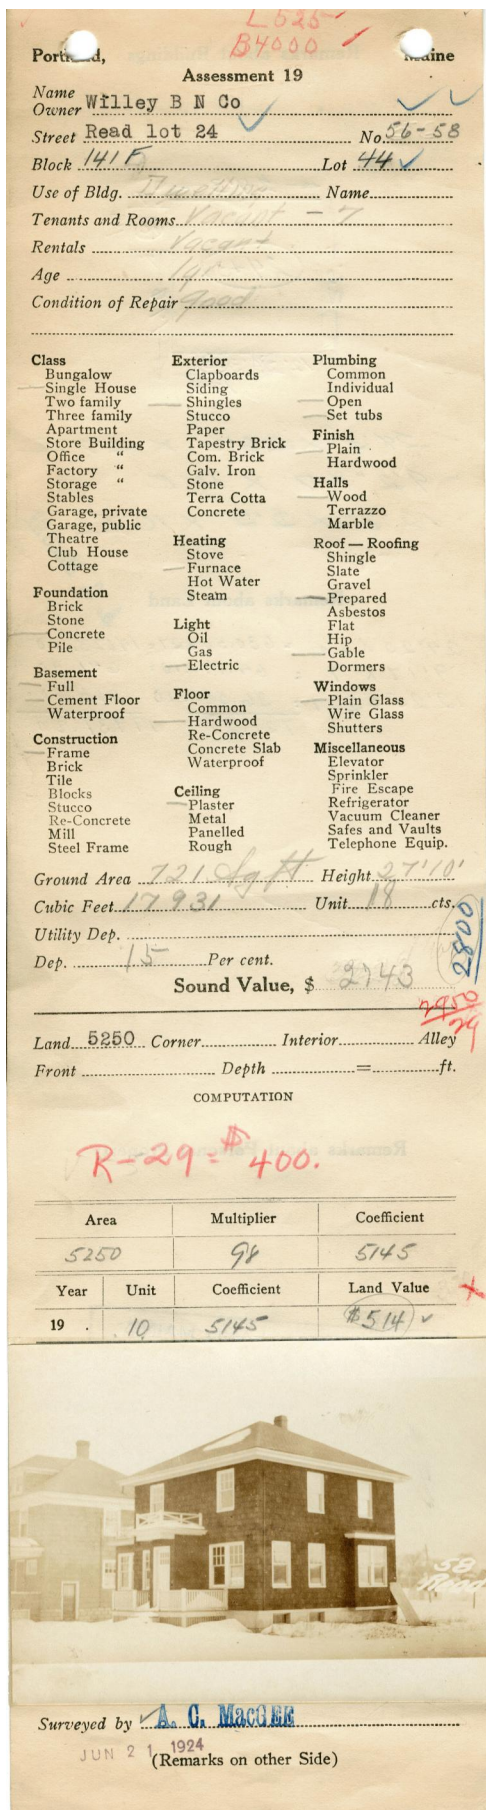 L525
B4000
Portland, Maine
Assessment 19
Name
Owner Willey B N Co
Street Read lot 24 No. 56-58
Block 141 F Lot 44
Use of Bldg. Dwelling Name
Tenants and Rooms Vacant - 7
Rentals Vacant
Age 1 yr
Condition of Repair good
Class
Bungalow
Single House
Two family
Three family
Apartment
Store Building
Office "
Factory "
Storage "
Stables
Garage, private
Garage, public
Theatre
Club House
Cottage
Foundation
Brick
Stone
Concrete
Pile
Basement
Full
Cement Floor
Waterproof
Construction
Frame
Brick
Tile
Blocks
Stucco
Re-Concrete
Mill
Steel Frame
Exterior
Clapboards
Siding
Shingles
Stucco
Paper
Tapestry Brick
Com. Brick
Galv. Iron
Stone
Terra Cotta
Concrete
Heating
Stove
Furnace
Hot Water
Steam
Light
Oil
Gas
Electric
Floor
Common
Hardwood
Re-Concrete
Concrete Slab
Waterproof
Ceiling
Plaster
Metal
Panelled
Rough
Plumbing
Common
Individual
Open
Set tubs
Finish
Plain
Hardwood
Halls
Wood
Terrazzo
Marble
Roof — Roofing
Shingle
Slate
Gravel
Prepared
Asbestos
Flat
Hip
Gable
Dormers
Windows
Plain Glass
Wire Glass
Shutters
Miscellaneous
Elevator
Sprinkler
Fire Escape
Refrigerator
Vacuum Cleaner
Safes and Vaults
Telephone Equip.
Ground Area 721 Sq ft Height 27'10'
Cubic Feet 17931 Unit 18 cts.
Utility Dep.
2800
Dep. 15 Per cent.
Sound Value, $ 2743
2950
29
Land 5250 Corner Interior Alley
Front Depth = ft.
COMPUTATION
R-29 = $400.
Area Multiplier Coefficient
5250 98 5145
Year Unit Coefficient Land Value
19 . 10 5145 $514
58
Read
Surveyed by A. C. MacGEE
JUN 21 1924
(Remarks on other Side)